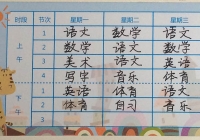 时段 节次 星期一 星期二 星期三
上午 1 语文 数学 语文
2 数学 语文 数学
3 美术 语文 英语
4 写字 音乐 体育
下午 1 英语 体育 语文
2 体育 自习 音乐
3